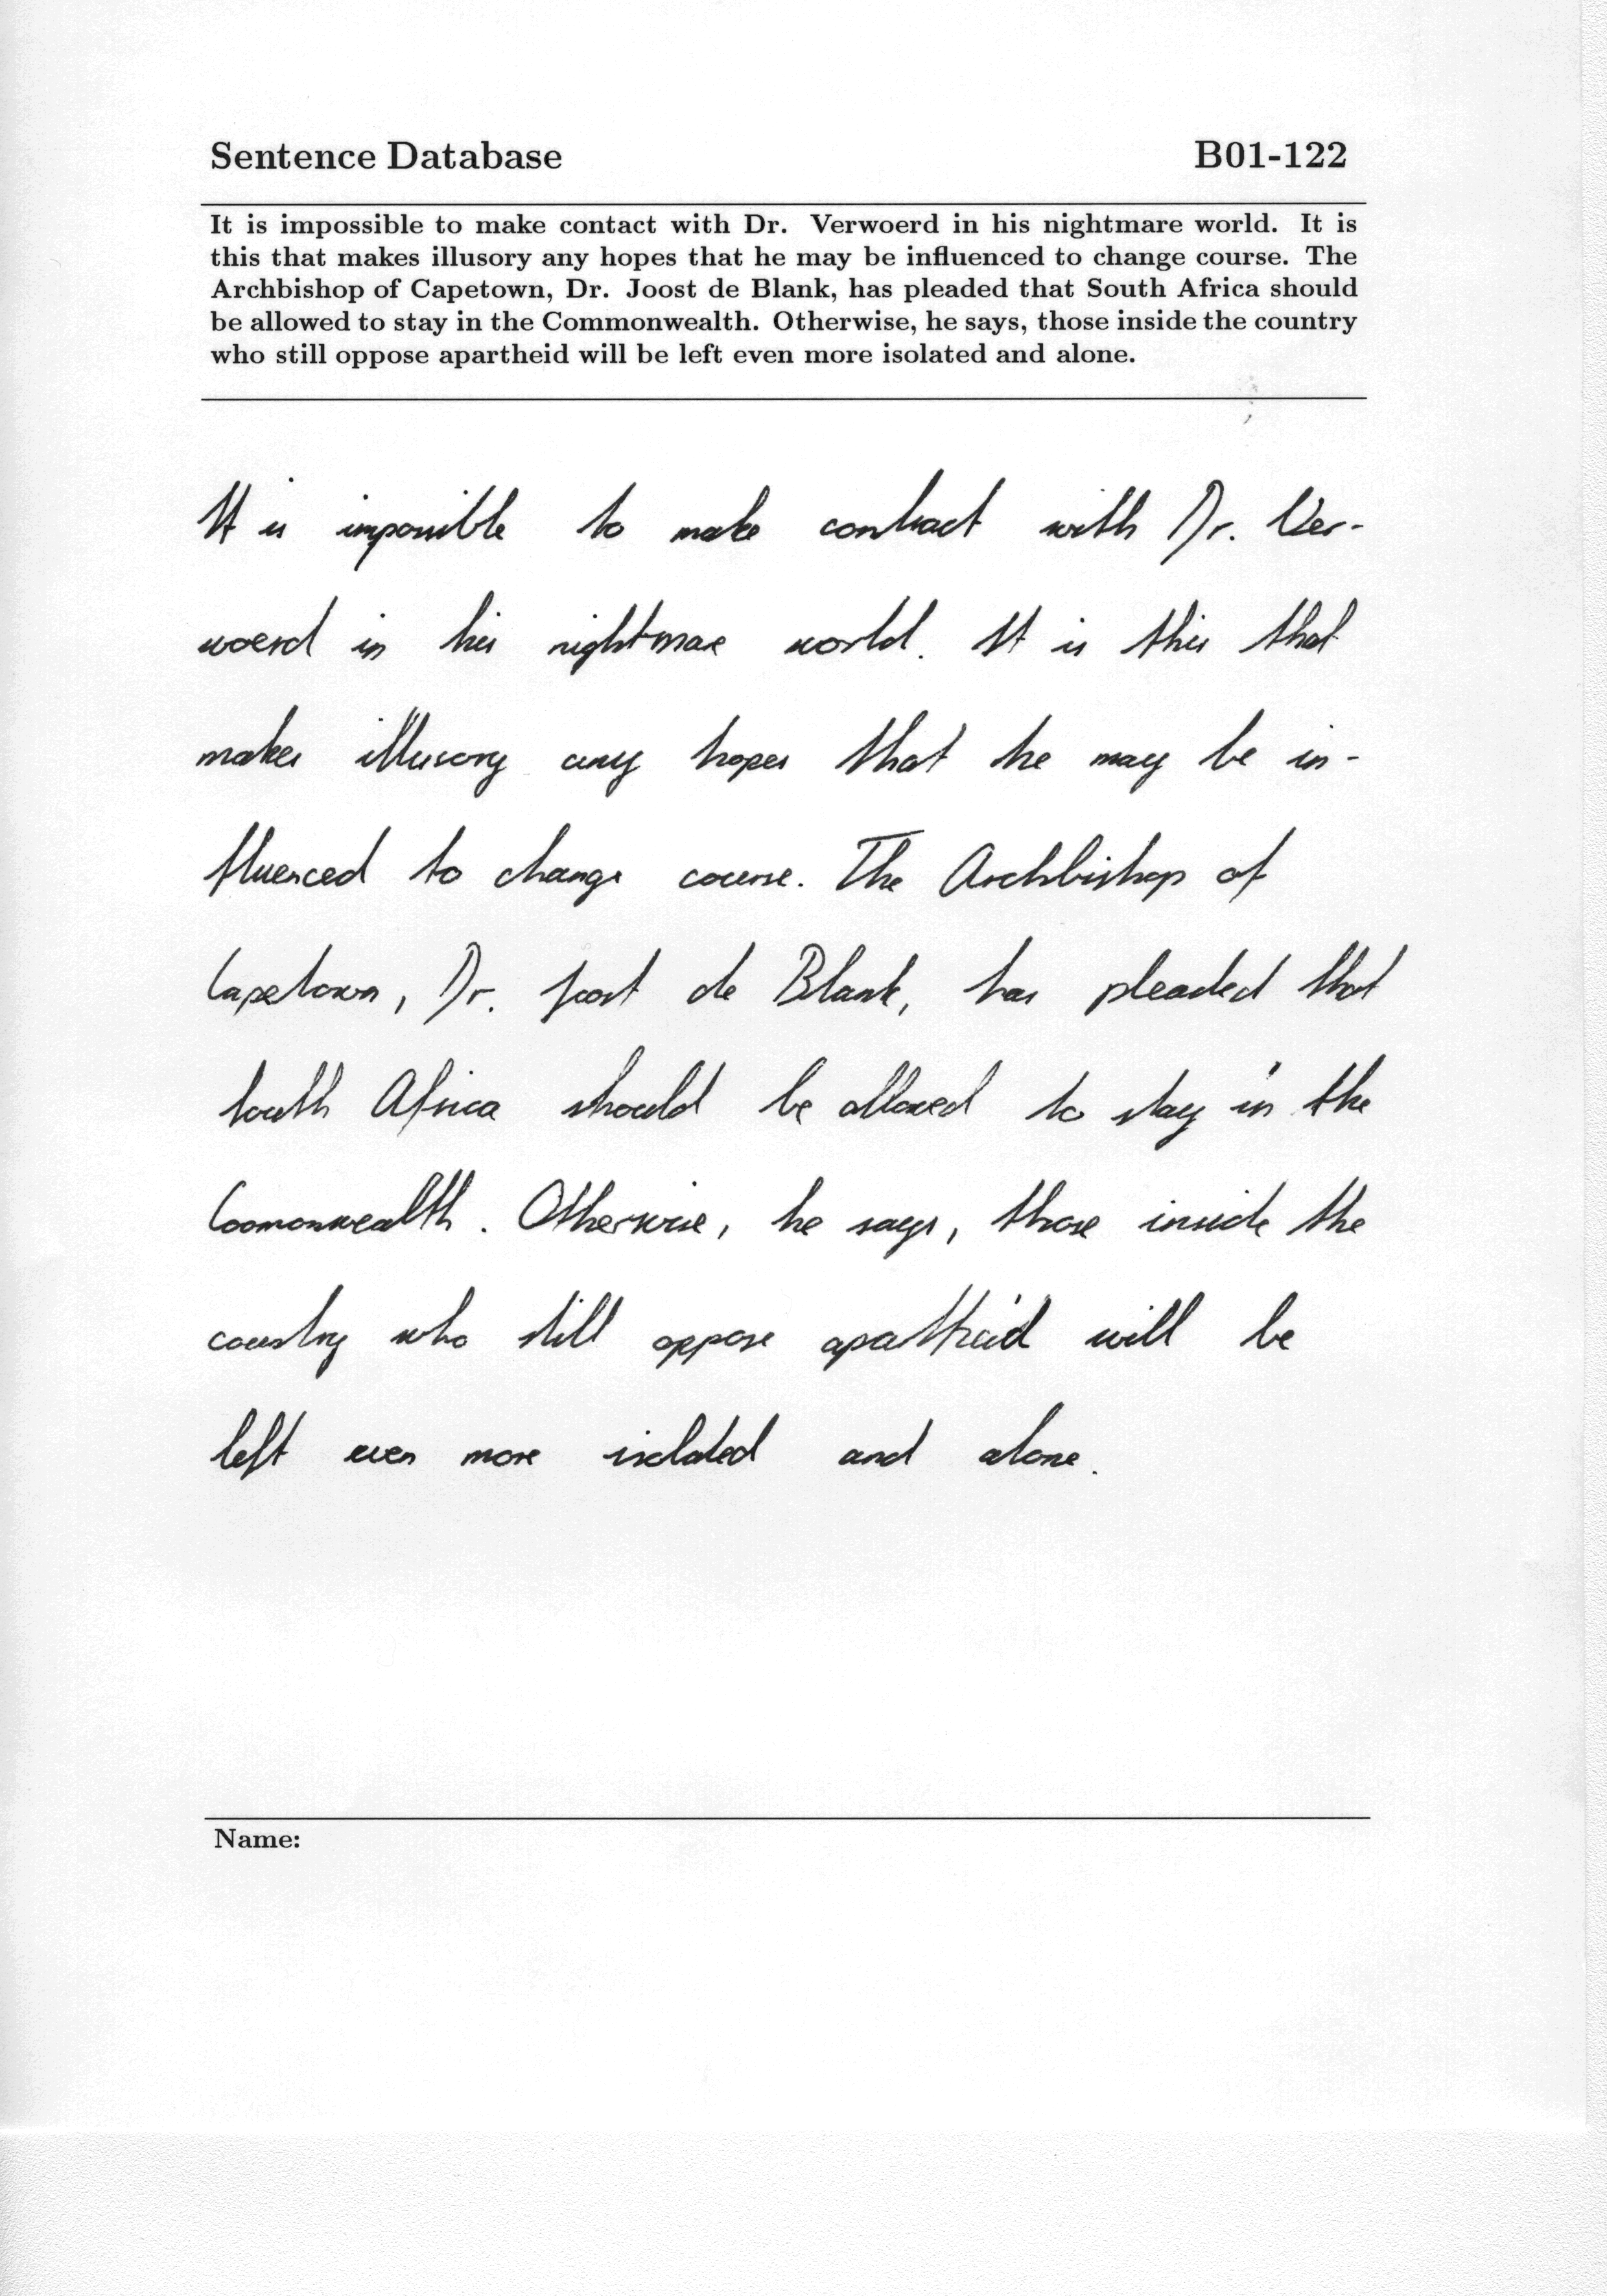 Sentence Database B01-122
It is impossible to make contact with Dr. Verwoerd in his nightmare world. It is
this that makes illusory any hopes that he may be influenced to change course. The
Archbishop of Capetown, Dr. Joost de Blank, has pleaded that South Africa should
be allowed to stay in the Commonwealth. Otherwise, he says, those inside the country
who still oppose apartheid will be left even more isolated and alone.
It is impossible to make contract with Dr. Ver-
woerd in his nightmare world. It is this that
makes illusory any hopes that he may be in-
fluenced to change course. The Archbishop of
Capetown, Dr. Joost de Blank, has pleaded that
South Africa should be allowed to stay in the
Coomonwealth. Otherwise, he says, those inside the
country who still oppose apartheid will be
left even more isolated and alone.
Name: